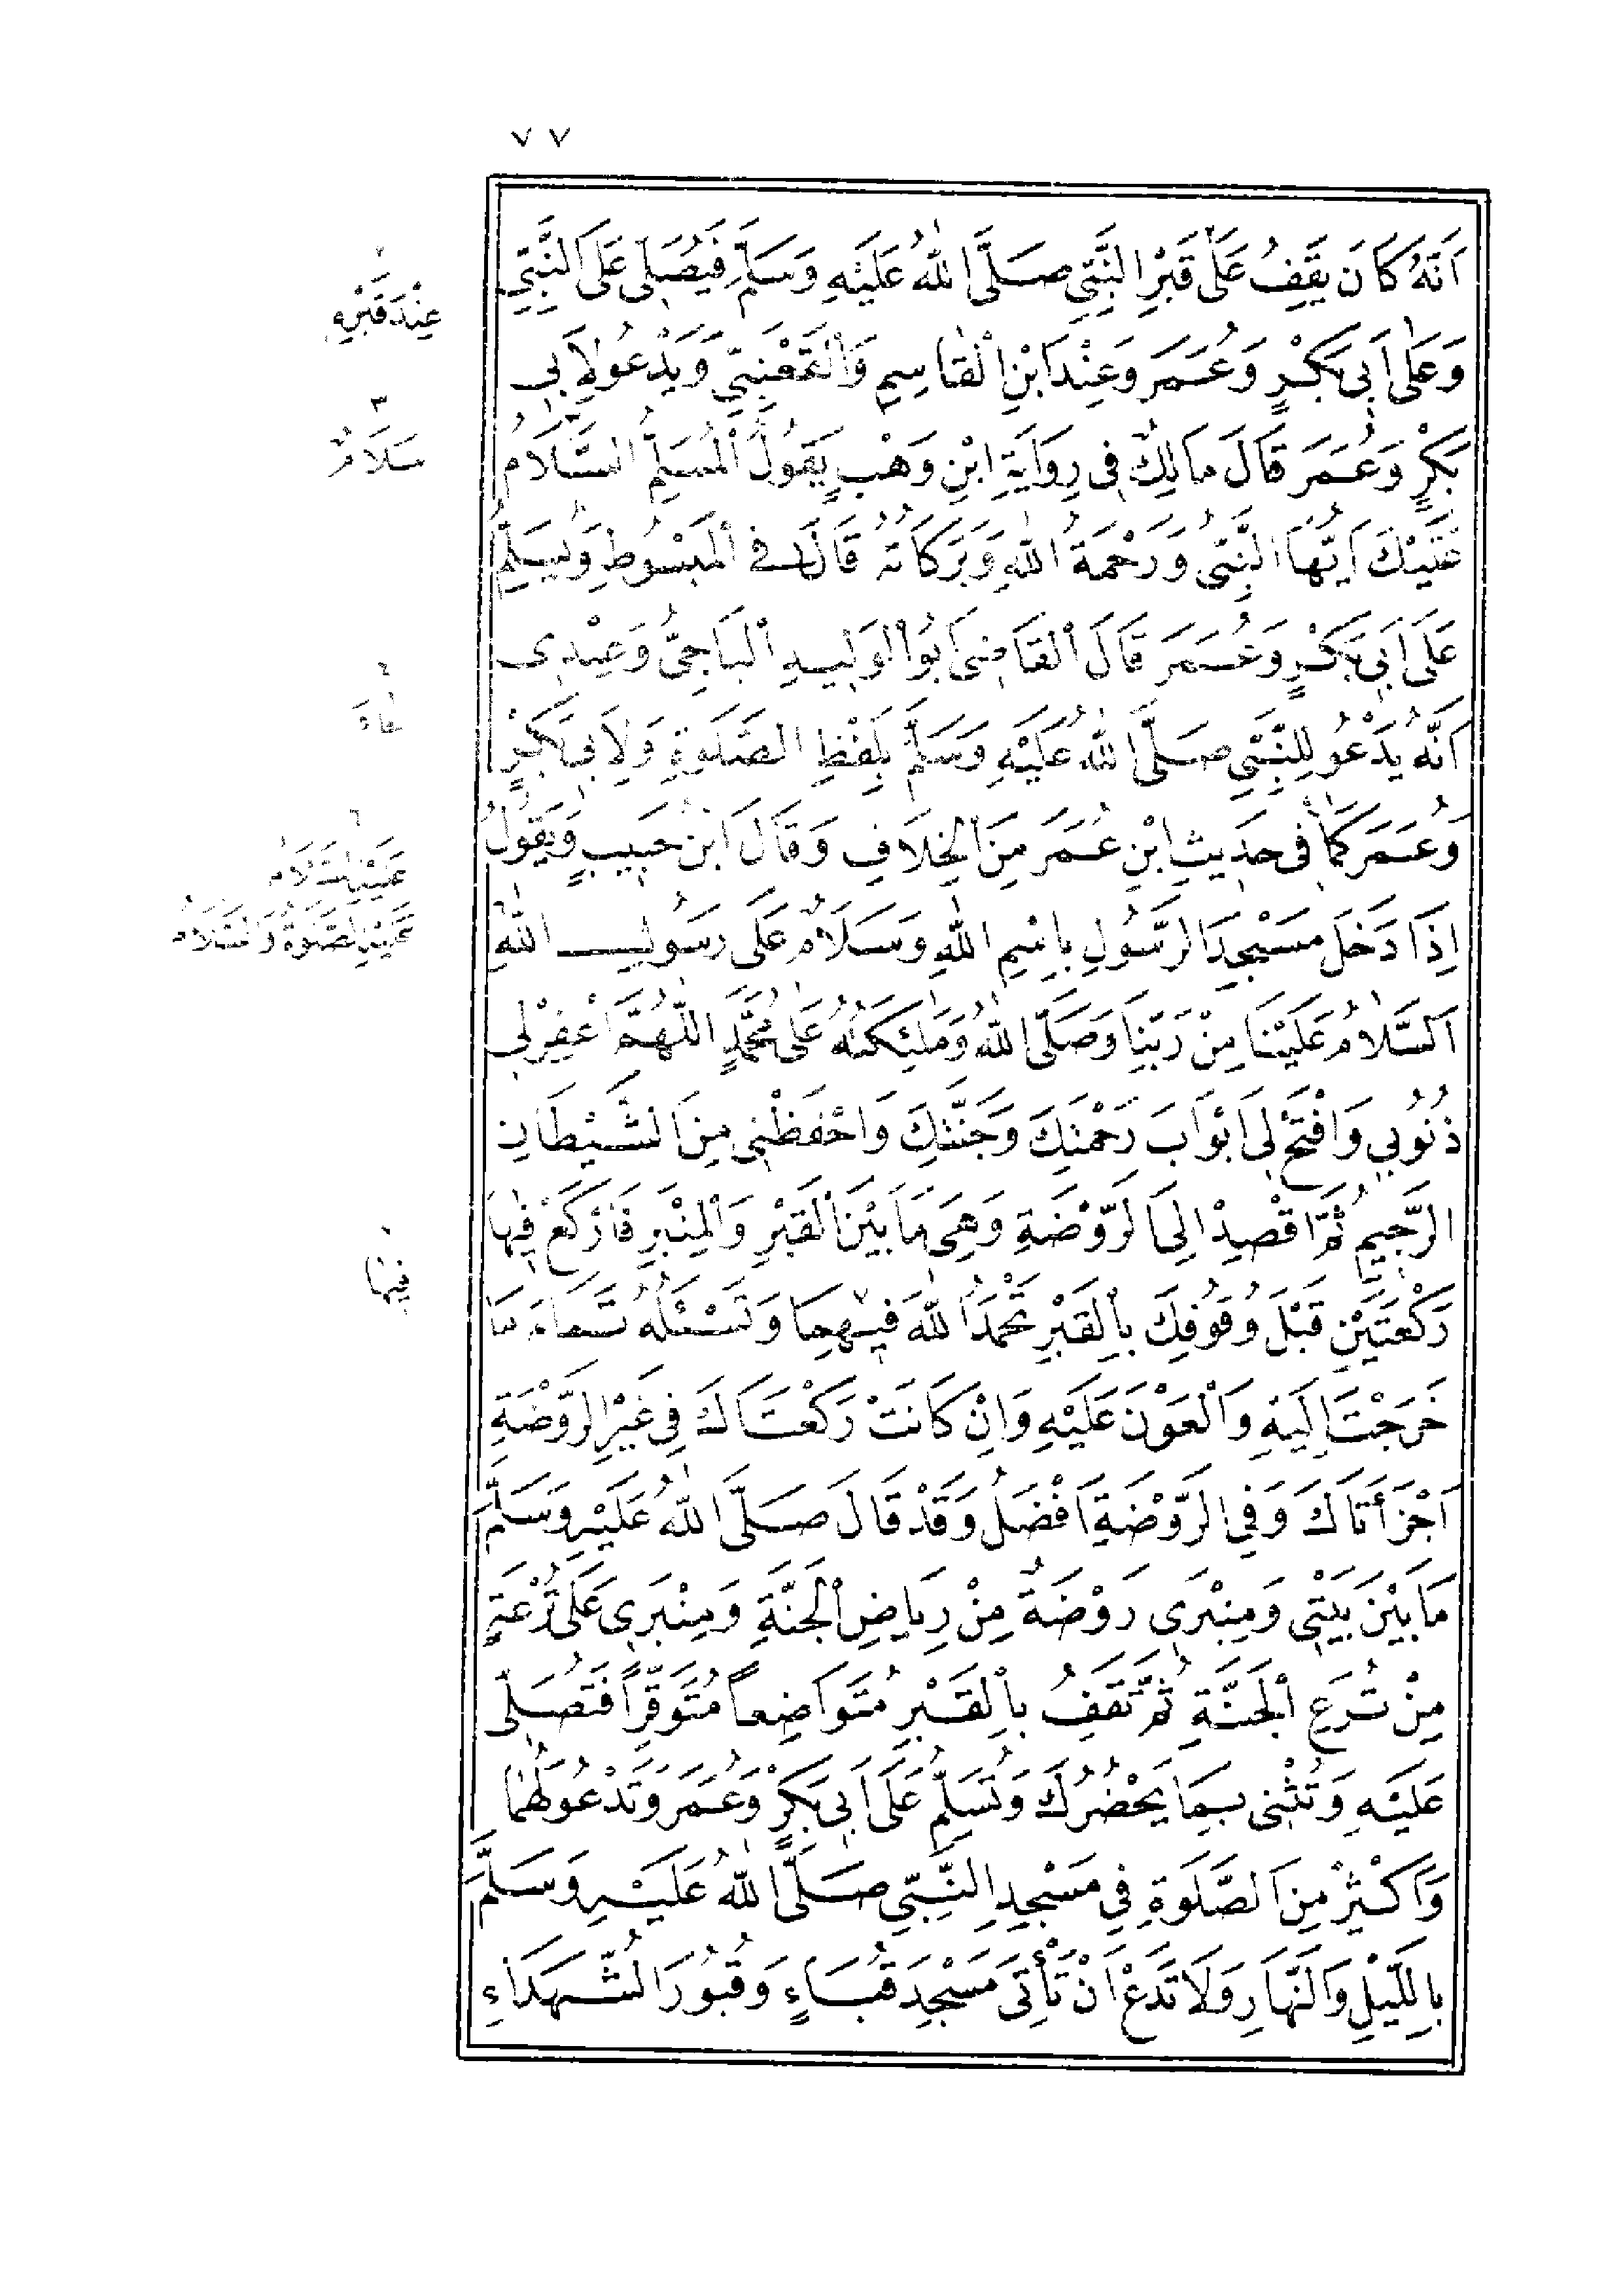 ٧٧
اَنَّهُ كَانَ يَقِفُ عَلَى قَبْرِ النَّبِيِّ صَلَّى اللّٰهُ عَلَيْهِ وَسَلَّمَ فَيُصَلِّى عَلَى النَّبِيِّ
وَعَلٰى اَبِى بَكْرٍ وَعُمَرَ وَعِنْدَ ابْنِ الْقَاسِمِ وَالْقَعْنَبِيِّ وَيَدْعُو لِاَبِى
بَكْرٍ وَعُمَرَ قَالَ مَالِكٌ فِى رِوَايَةِ ابْنِ وَهْبٍ يَقُولُ الْمُسَلِّمُ السَّلَامُ
عَلَيْكَ اَيُّهَا النَّبِىُّ وَرَحْمَةُ اللّٰهِ وَبَرَكَاتُهُ قَالَ فِى الْمَبْسُوطِ وَيُسَلِّمُ
عَلَى اَبِى بَكْرٍ وَعُمَرَ قَالَ الْقَاضِى اَبُو الْوَلِيدِ الْبَاجِىُّ وَعِنْدِى
اَنَّهُ يَدْعُو لِلنَّبِيِّ صَلَّى اللّٰهُ عَلَيْهِ وَسَلَّمَ بِلَفْظِ الصَّلٰوةِ وَلِاَبِى بَكْرٍ
وَعُمَرَ كَمَا فِى حَدِيثِ ابْنِ عُمَرَ مِنَ الْخِلَافِ وَقَالَ ابْنُ حَبِيبٍ وَيَقُولُ
اِذَا دَخَلَ مَسْجِدَ الرَّسُولِ بِاسْمِ اللّٰهِ وَسَلَامٌ عَلَى رَسُولِ اللّٰهِ
اَلسَّلَامُ عَلَيْنَا مِنْ رَبِّنَا وَصَلَّى اللّٰهُ وَمَلٰئِكَتُهُ عَلٰى مُحَمَّدٍ اللّٰهُمَّ اغْفِرْلِى
ذُنُوبِى وَافْتَحْ لِى اَبْوَابَ رَحْمَتِكَ وَجَنَّتِكَ وَاحْفَظْنِى مِنَ الشَّيْطَانِ
الرَّجِيمِ ثُمَّ اقْصِدْ اِلَى الرَّوْضَةِ وَهِىَ مَا بَيْنَ الْقَبْرِ وَالْمِنْبَرِ فَارْكَعْ فِيهَا
رَكْعَتَيْنِ قَبْلَ وُقُوفِكَ بِالْقَبْرِ تَحْمَدُ اللّٰهَ فِيهِمَا وَتَسْئَلُهُ تَمَامَ مَا
خَرَجْتَ اِلَيْهِ وَالْعَوْنَ عَلَيْهِ وَاِنْ كَانَتْ رَكْعَتَاكَ فِى غَيْرِ الرَّوْضَةِ
اَجْزَأَتَاكَ وَفِى الرَّوْضَةِ اَفْضَلُ وَقَدْ قَالَ صَلَّى اللّٰهُ عَلَيْهِ وَسَلَّمَ
مَا بَيْنَ بَيْتِى وَمِنْبَرِى رَوْضَةٌ مِنْ رِيَاضِ الْجَنَّةِ وَمِنْبَرِى عَلَى تُرْعَةٍ
مِنْ تُرَعِ الْجَنَّةِ ثُمَّ تَقِفُ بِالْقَبْرِ مُتَوَاضِعاً مُتَوَقِّراً فَتُصَلِّى
عَلَيْهِ وَتُثْنِى بِمَا يَحْضُرُكَ وَتُسَلِّمُ عَلَى اَبِى بَكْرٍ وَعُمَرَ وَتَدْعُو لَهُمَا
وَاَكْثِرْ مِنَ الصَّلٰوةِ فِى مَسْجِدِ النَّبِيِّ صَلَّى اللّٰهُ عَلَيْهِ وَسَلَّمَ
بِاللَّيْلِ وَالنَّهَارِ وَلَا تَدَعْ اَنْ تَأْتِىَ مَسْجِدَ قُبَاءٍ وَقُبُورَ الشُّهَدَاءِ
عِنْدَ قَبْرِهِ
٣
سَلَامٌ
٦
فِيهَا